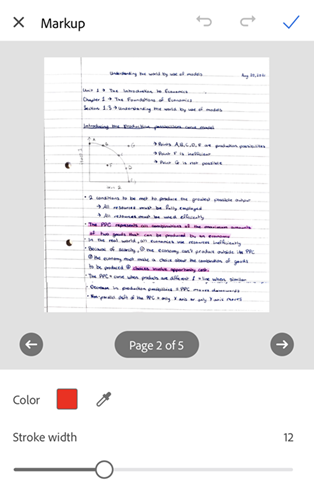 Markup
Understanding the world by use of models
Aug 30, 2021
Unit 1 → The Introduction to Economics
Chapter 1 → The Foundations of Economics
Section 1.3 → Understanding the world by use of models
Introducing the Production possibilities curve model
→ Points A,B,C,D,E are production possibilities
→ Point F is inefficient
→ Point G is not possible
• 2 conditions to be met to produce the greatest possible output
→ All resources must be fully employed
→ All resources must be used efficiently
• The PPC represents all combinations of the maximum amounts
of two goods that can be produced by an economy
• In the real world, all economies use resources inefficiently
• Because of scarcity, ① the economy can't produce outside its PPC
② the economy must make a choice about the combination of goods
to be produced ③ choices involve opportunity cost
• The PPC = curve when products are different & = line when similar
Decrease in production possibilities = PPC moves downwards
• Non-parallel shift of the PPC = only X axis or only Y axis moves
Page 2 of 5
Color
Stroke width
12